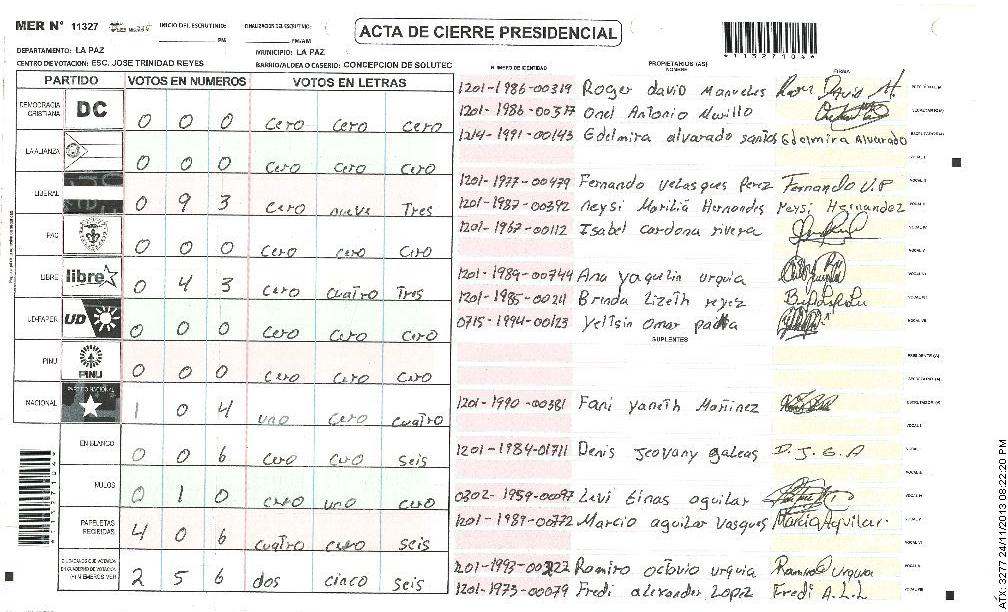 MER N° 11327 INICIO DEL ESCRUTINIO: PM FINALIZACION DEL ESCRUTINIO: PM/AM
ACTA DE CIERRE PRESIDENCIAL
*11327104*
DEPARTAMENTO: LA PAZ MUNICIPIO: LA PAZ
CENTRO DE VOTACION: ESC. JOSE TRINIDAD REYES BARRIO/ALDEA O CASERIO: CONCEPCION DE SOLUTEC
PARTIDO VOTOS EN NUMEROS VOTOS EN LETRAS
DEMOCRACIA CRISTIANA DC 0 0 0 cero cero cero
LA ALIANZA 0 0 0 cero cero cero
LIBERAL 0 9 3 cero nueve Tres
PAC 0 0 0 cero cero cero
LIBRE libre 0 4 3 cero cuatro Tres
UD-FAPER UD 0 0 0 cero cero cero
PINU PINU 0 0 0 cero cero cero
NACIONAL PARTIDO NACIONAL 1 0 4 uno cero cuatro
EN BLANCO 0 0 6 cero cero seis
NULOS 0 1 0 cero uno cero
PAPELETAS RECIBIDAS 4 0 6 cuatro cero seis
CIUDADANOS QUE VOTARON EN CUADERNO DE VOTACION 2 5 6 dos cinco seis
NUMERO DE IDENTIDAD PROPIETARIOS (AS) NOMBRE FIRMA
1201-1986-00319 Roger david Manueles
1201-1986-00317 Onel Antonio Murillo
1214-1991-00143 Edelmira alvarado santos Edelmira Alvarado
1201-1977-00479 Fernando velasques perez Fernando V.P
1201-1987-00392 neysi Marilia Hernandes Neysi Hernandez
1201-1967-00112 Isabel cardona rivera
1201-1989-00744 Ana yaquelin urquia
1201-1985-00211 Brinda lizeth reyez
0715-1994-00123 yeltsin omar padilla
SUPLENTES
1201-1990-00381 Fani yaneth Martinez
1201-1984-01711 Denis Jeovany galeas D.J.G.A
0302-1959-00097 Levi Ginas aguilar
1201-1989-00772 Marcio aguilar vasques Marcio Aguilar
1201-1993-00322 Ramiro octavio urquia Ramiro Urquia
1201-1973-00079 Fredi alexander Lopez Fredi A.L.L
*11327104*
3277 24/11/2013 08:22:20 PM